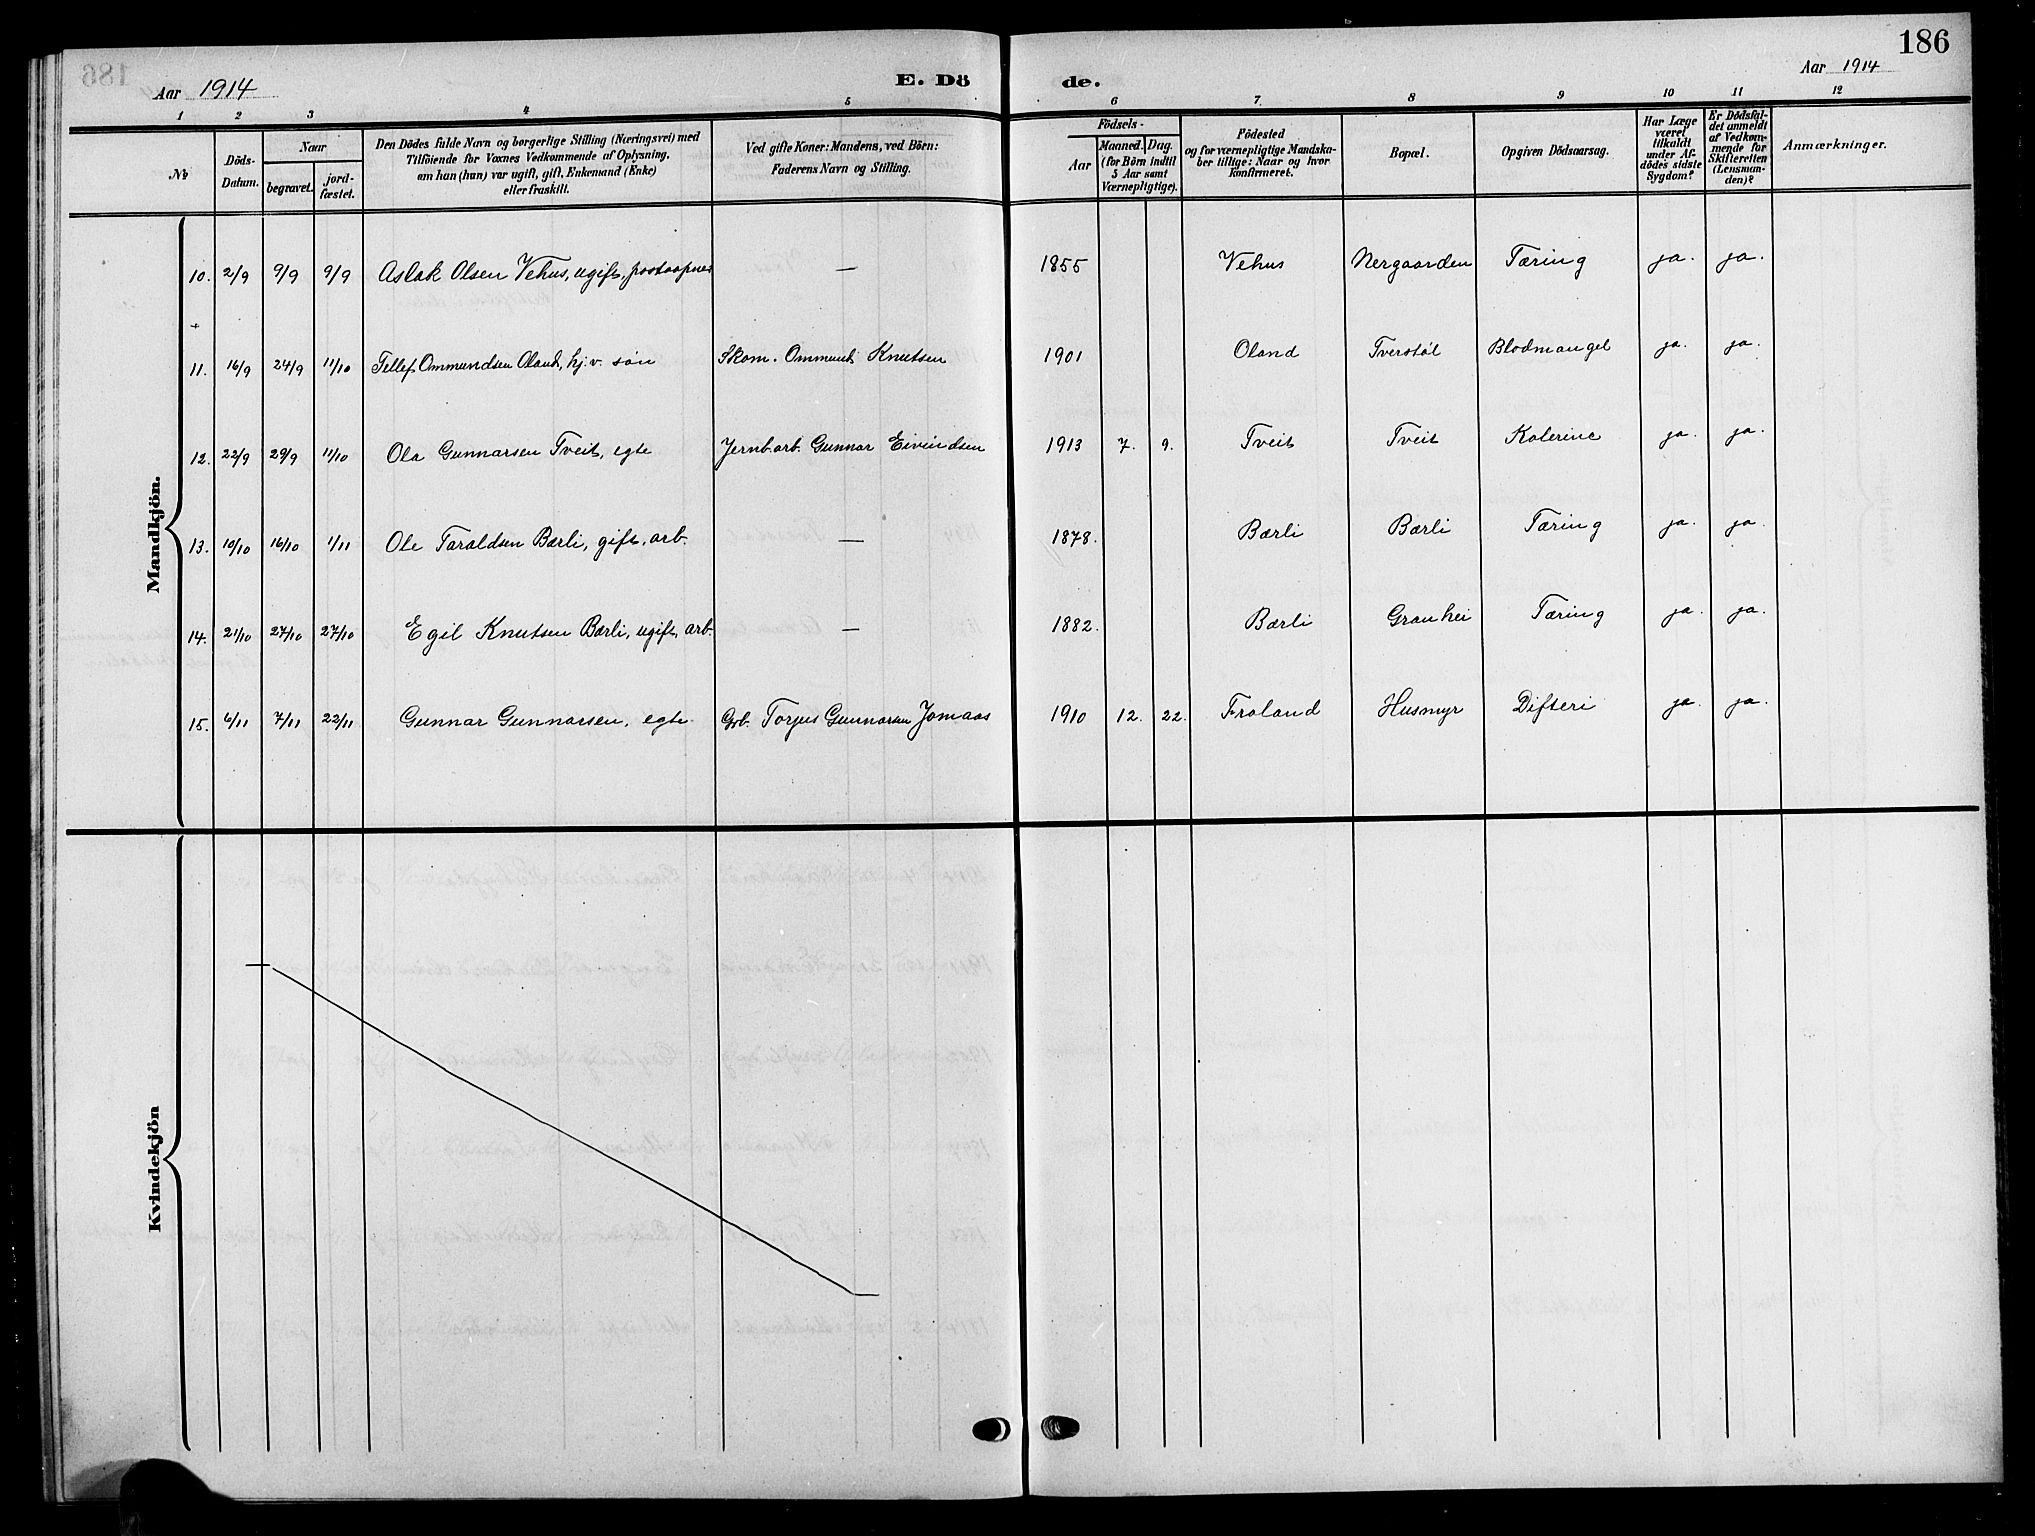 186
Aar 1914
E. Dö
de.
Aar 1914
1 2 3 4 5 6 7. 8 9 10 11 12
№
Döds-Datum.
Naar
begravet.
jord-fæstet.
Den Dödes fulde Navn og borgerlige Stilling (Næringsvei) med
Tilföiende for Voxnes Vedkommende af Oplysning,
om han (hun) var ugift, gift, Enkemand (Enke)
eller fraskilt.
Ved gifte Koner: Mandens, ved Börn:
Faderens Navn og Stilling.
Födsels-
Aar
Maaned.
Dag.
(for Börn indtil
5 Aar samt
Værnepligtige).
Födested
og for værnepligtige Mandska-
ber tillige: Naar og hvor
konfirmeret.
Bopæl.
Opgiven Dödsaarsag.
Har Læge
været
tilkaldt
under Af-
dödes sidste
Sygdom?
Er Dödsfal-
det anmeldt
af Vedkom-
mende for
Skifteretten
(Lensman-
den)?
Anmærkninger.
Mandkjön.
10. 2/9 9/9 9/9 Aslak Olsen Vehus, ugift, postaapner — 1855 Vehus Nergaarden Tæring ja. ja.
+
11. 16/9 24/9 11/10 Tellef Ommundsen Oland, hj.v. søn Skom. Ommund Knutsen 1901 Oland Tverstøl Blodmangel ja. ja.
12. 22/9 29/9 11/10 Ola Gunnarsen Tveit, egte Jernb.arb. Gunnar Eivindsen 1913 7. 9. Tveit Tveit Kolerine ja. ja.
13. 10/10 16/10 1/11 Ole Taraldsen Bærli, gift, arb. — 1878. Bærli Bærli Tæring ja. ja.
14. 21/10 27/10 27/10 Egil Knutsen Bærli, ugift, arb. — 1882. Bærli Granhei Tæring ja. ja.
15. 6/11 7/11 22/11 Gunnar Gunnarsen, egte. Grb. Torjus Gunnarsen Jomaas 1910 12. 22. Froland Husmyr Difteri ja. ja.
Kvindekjön